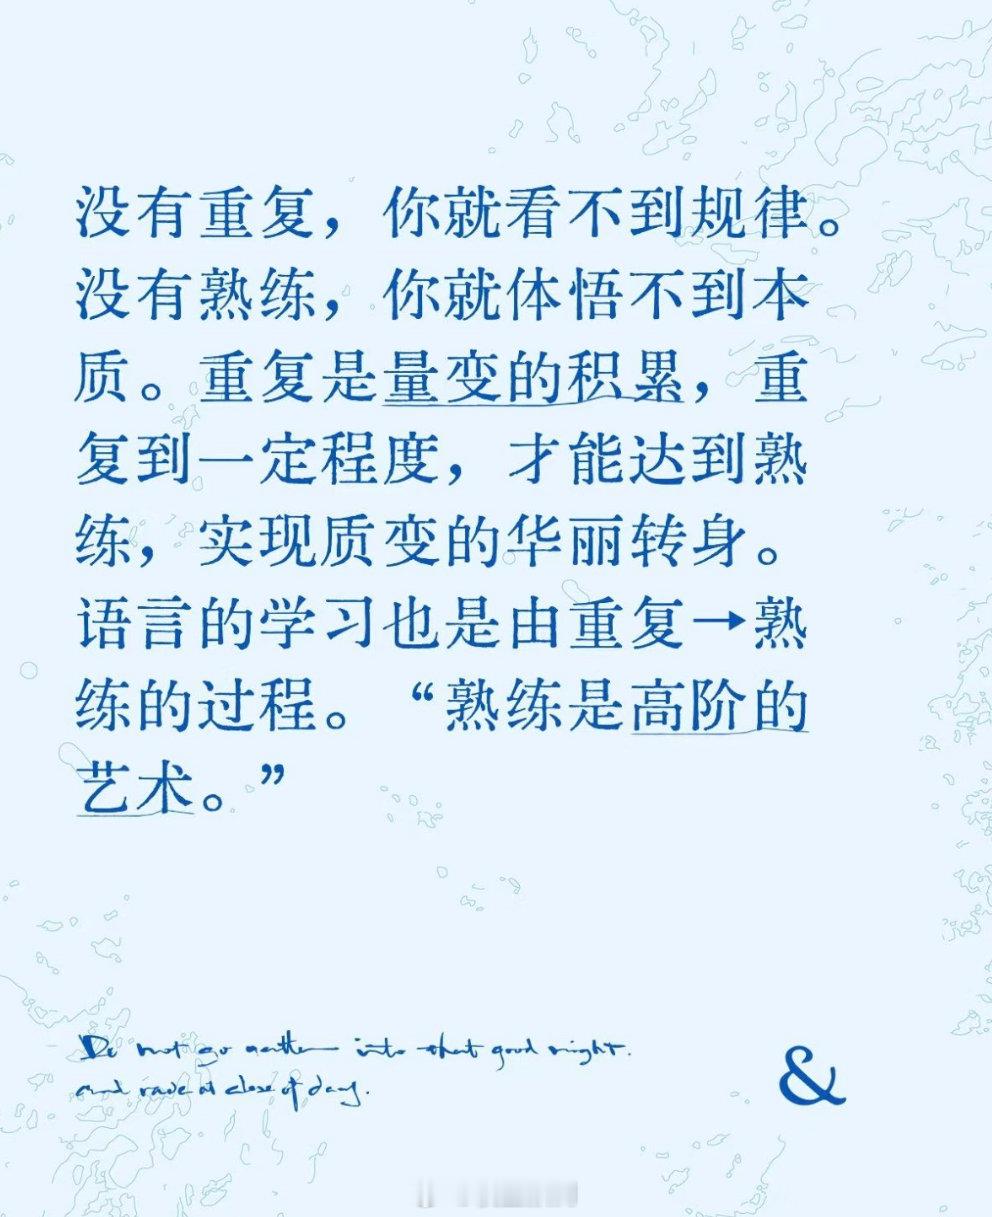 没有重复，你就看不到规律。
没有熟练，你就体悟不到本
质。重复是量变的积累，重
复到一定程度，才能达到熟
练，实现质变的华丽转身。
语言的学习也是由重复→熟
练的过程。“熟练是高阶的
艺术。”
Do not go into that good night.
and at close of day.
&